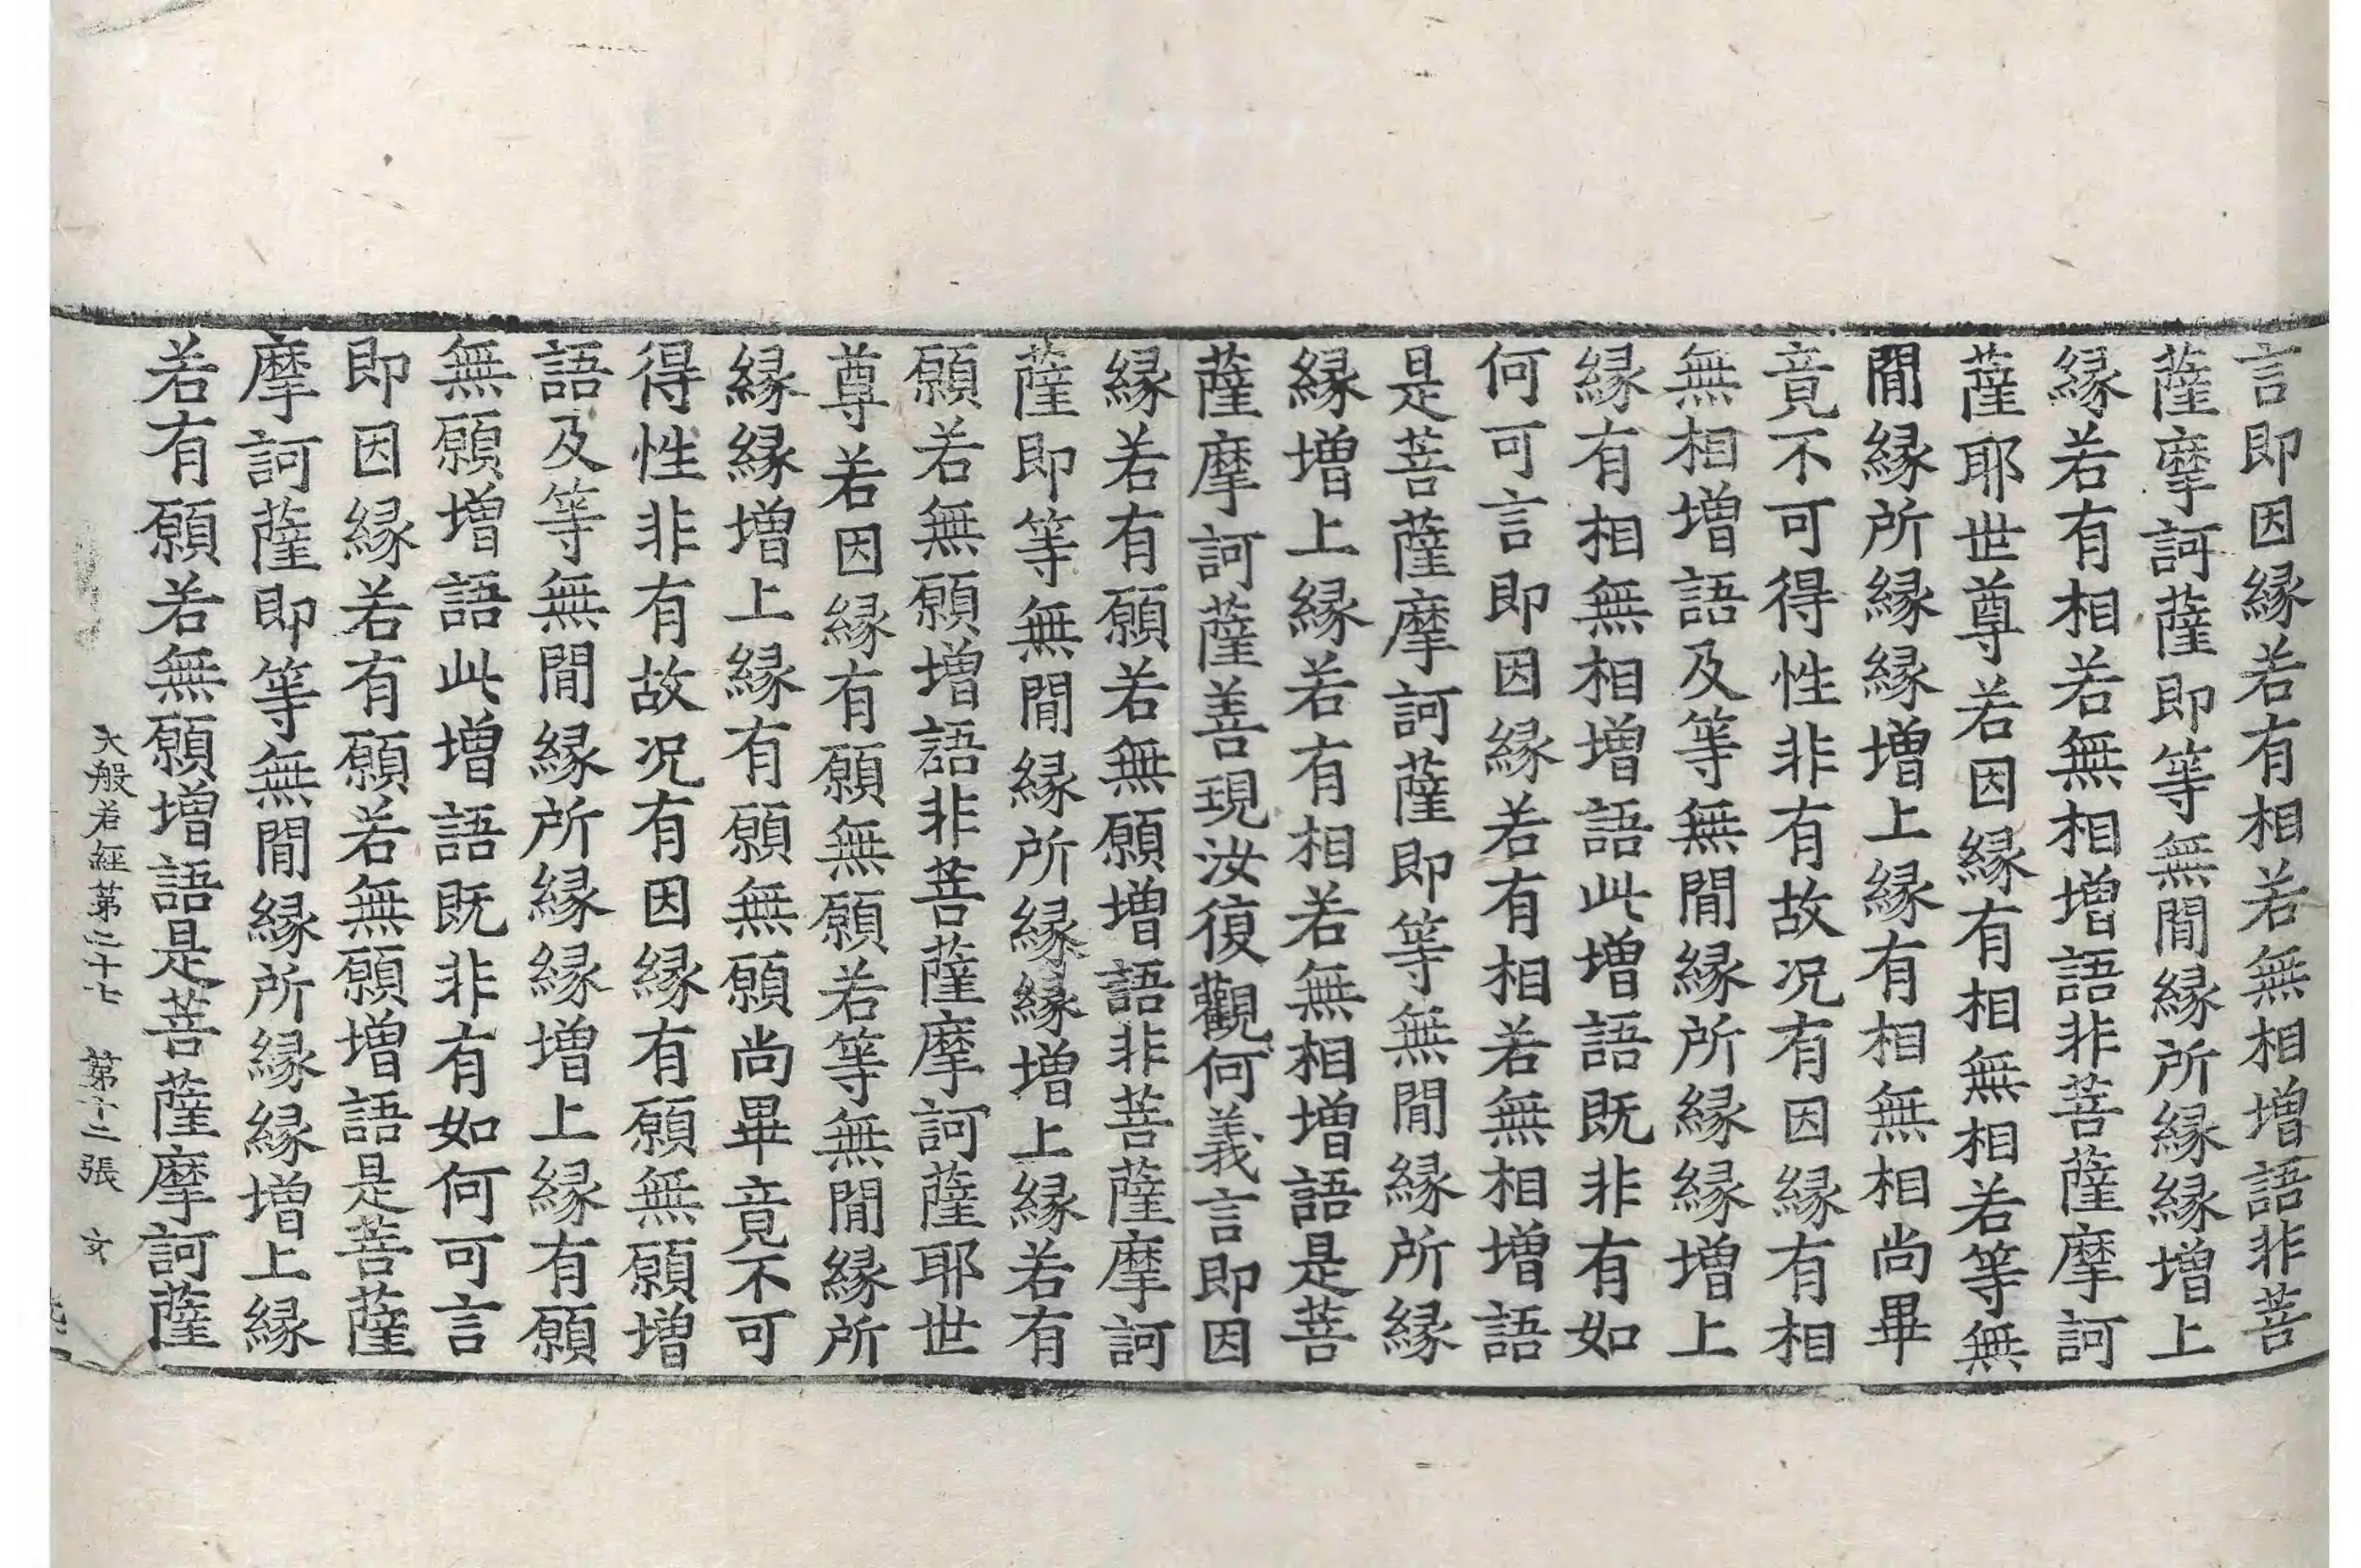 言即因縁若有相若無相增語非菩
薩摩訶薩即等無閒縁所縁縁增上
縁若有相若無相增語非菩薩摩訶
薩耶世尊若因縁有相無相若等無
閒縁所縁縁增上縁有相無相尚畢
竟不可得性非有故况有因縁有相
無相增語及等無閒縁所縁縁增上
縁有相無相增語此增語既非有如
何可言即因縁若有相若無相增語
是菩薩摩訶薩即等無閒縁所縁
縁增上縁若有相若無相增語是菩
薩摩訶薩善現汝復觀何義言即因
縁若有願若無願增語非菩薩摩訶
薩即等無閒縁所縁縁增上縁若有
願若無願增語非菩薩摩訶薩耶世
尊若因縁有願無願若等無閒縁所
縁縁增上縁有願無願尚畢竟不可
得性非有故况有因縁有願無願增
語及等無閒縁所縁縁增上縁有願
無願增語此增語既非有如何可言
即因縁若有願若無願增語是菩薩
摩訶薩即等無閒縁所縁縁增上縁
若有願若無願增語是菩薩摩訶薩
大般若經第二十七 第十二張 文